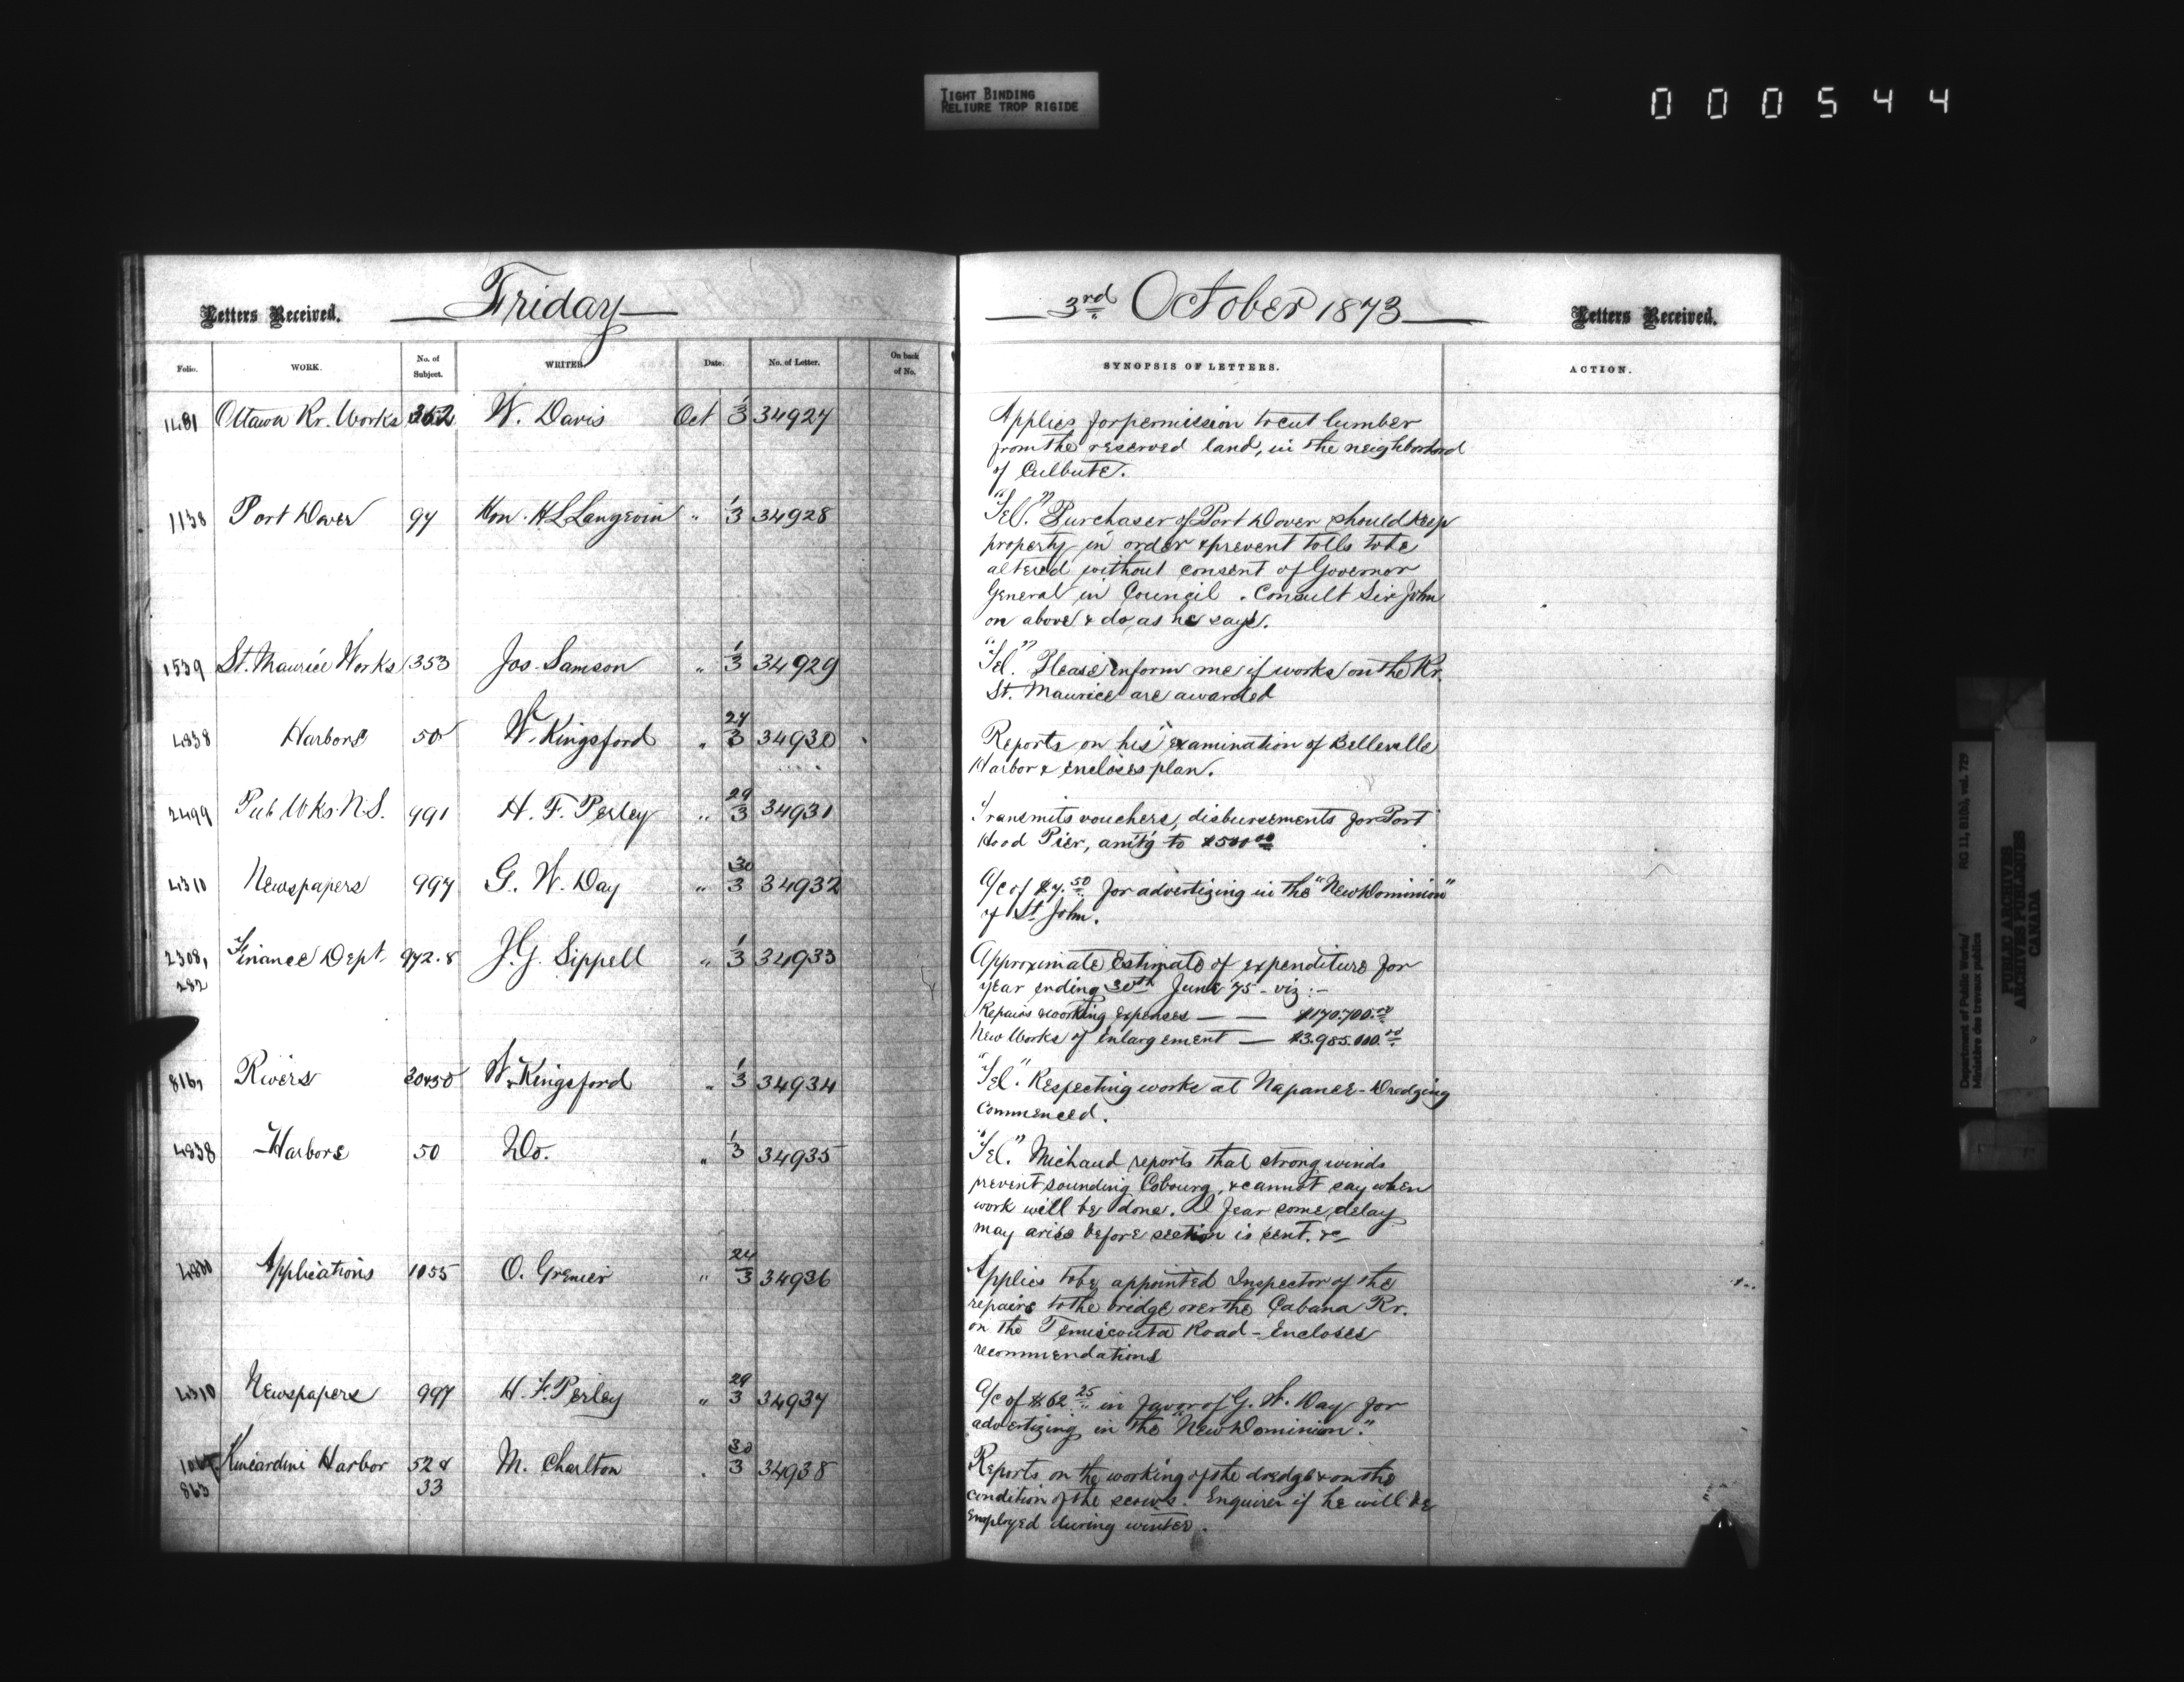 TIGHT BINDING
RELIURE TROP RIGIDE
000544
Letters Received.
Friday
3rd October 1873
Letters Received.
Folio. WORK. No. of Subject. WRITER. Date. No. of Letter. On back of No. SYNOPSIS OF LETTERS. ACTION.
1481 Ottawa Rr. Works 352 W. Davis Oct 1/3 34927
Applies for permission to cut lumber
from the reserved land, in the neighborhood
of Culbute.
1138 Port Dover 97 Hon. H L Langevin " 1/3 34928
"Tel." Purchaser of Port Dover should keep
property in order & prevent tolls to be
altered without consent of Governor
General in Council. Consult Sir John
on above & do as he says.
1539 St. Maurice Works 353 Jos. Samson " 1/3 34929
"Tel." Please inform me if works on the Rr.
St. Maurice are awarded
4838 Harbors 50 W. Kingsford " 27/3 34930
Reports on his examination of Belleville
Harbor & encloses plan.
2499 Pub Wks. N.S. 991 H. F. Perley " 29/3 34931
Transmits vouchers, disbursements for Port
Hood Pier, amt'g to $500.00
4310 Newspapers 997 G. W. Day " 30/3 34932
A/c of $7.50 for advertizing in the "New Dominion"
of St. John.
2308, 282 Finance Dept. 972.8 J. G. Sippell " 1/3 34933
Approximate Estimate of expenditure for
year ending 30th June 75 - viz:-
Repairs & working expenses — — $170.700.00
New Works of enlargement — $3.985.000.00
816, Rivers 30450 W. Kingsford " 1/3 34934
"Tel." Respecting works at Napanee - Dredging
commenced.
4838 Harbors 50 Do. " 1/3 34935
"Tel." Michaud reports that strong winds
prevent sounding Cobourg, & cannot say when
work will be done. I fear some delay
may arise before section is sent. &c
Applications 1055 O. Grenier " 24/3 34936
Applies to be appointed Inspector of the
repairs to the bridge over the Cabana Rr.
on the Temiscouta Road - Encloses
recommendations
4310 Newspapers 997 H. F. Perley " 29/3 34937
A/c of $62.25 in favor of G. W. Day for
advertizing in the "New Dominion."
863 Kincardine Harbor 52 & 33 M. Charlton . 30/3 34938
Reports on the working of the dredge & on the
condition of the scows. Enquires if he will be
employed during winter.
Department of Public Works/
Ministère des travaux publics
RG 11, B1(b), vol. 729
PUBLIC ARCHIVES
ARCHIVES PUBLIQUES
CANADA